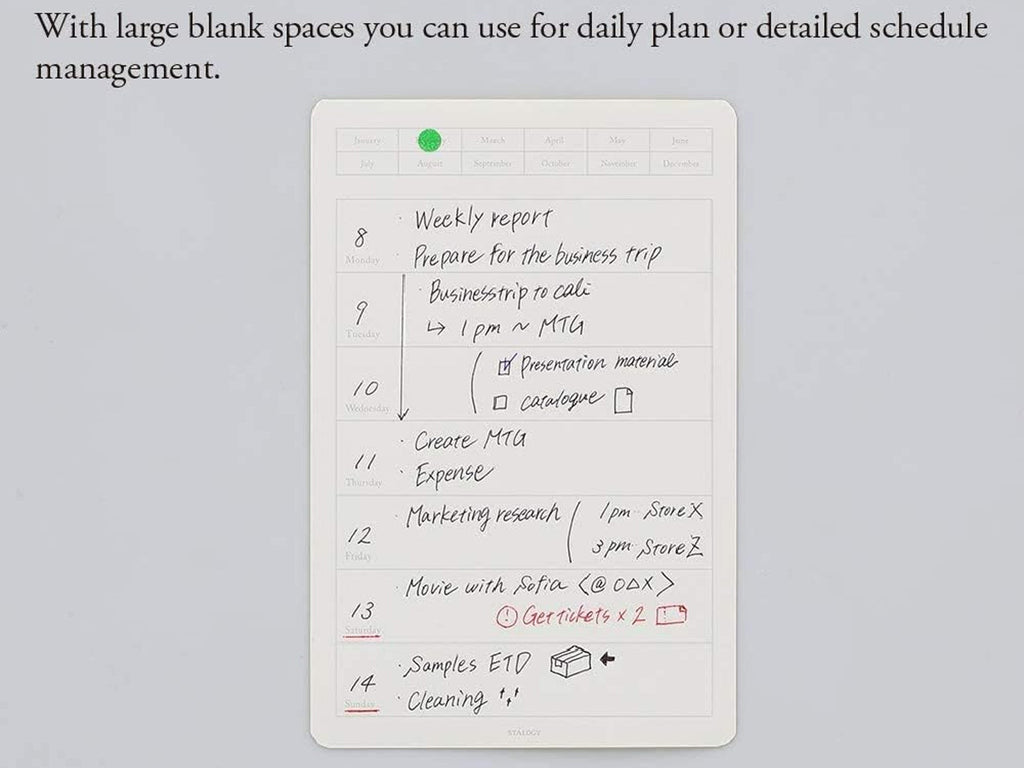 With large blank spaces you can use for daily plan or detailed schedule
management.
January March April May June
July August September October November December
8 Monday
· Weekly report
· Prepare for the business trip
9 Tuesday
· Businesstrip to cali
↳ 1 pm ~ MTG
10 Wednesday
☑ Presentation material
☐ catalogue
11 Thursday
· Create MTG
· Expense
12 Friday
· Marketing research ( 1 pm · Store X
3 pm · Store Z
13 Saturday
· Movie with Sofia <@ O△X>
! Get tickets x 2
14 Sunday
· Samples ETD
· Cleaning
STÁLOGY